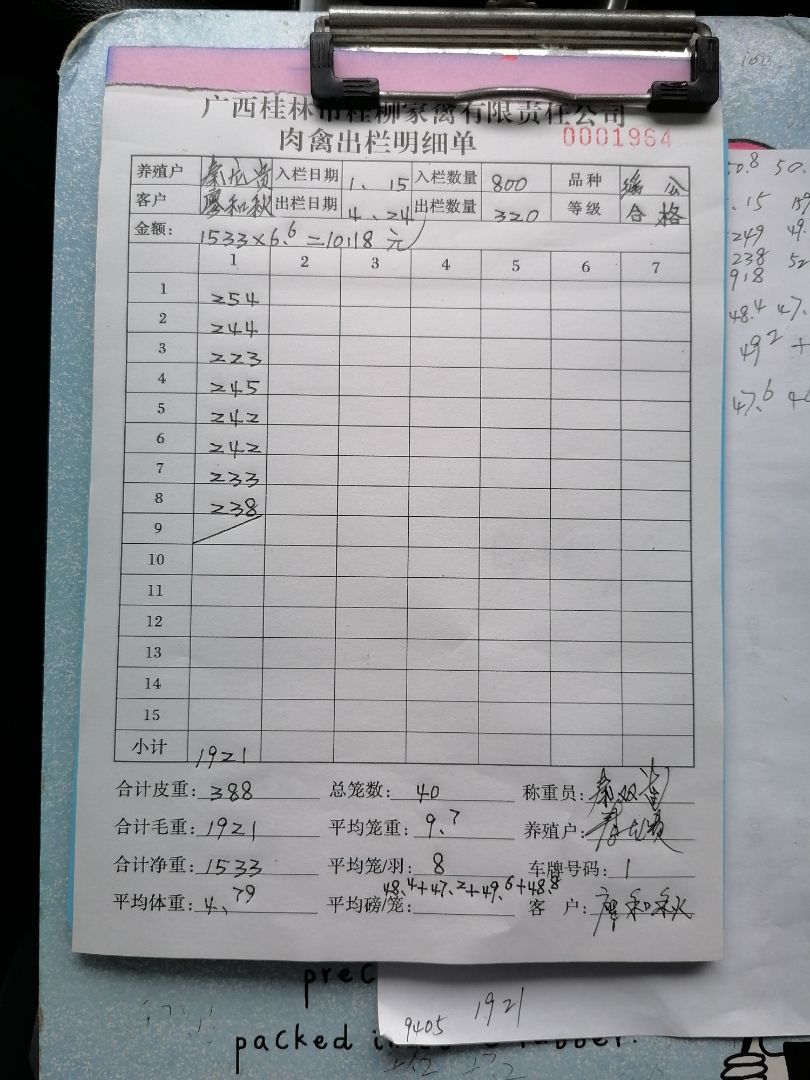 广西桂林市桂柳家禽有限责任公司
肉禽出栏明细单 0001964
养殖户 秦 贵 入栏日期 1、15 入栏数量 800 品种 瑶公
客户 廖和秋 出栏日期 4、24 出栏数量 320 等级 合格
金额: 1533×6.6=10118元
1 2 3 4 5 6 7
1 254
2 244
3 223
4 245
5 242
6 242
7 233
8 238
9
10
11
12
13
14
15
小计 1921
合计皮重: 388 总笼数: 40 称重员:
合计毛重: 1921 平均笼重: 9.7 养殖户:
合计净重: 1533 平均笼/羽: 8 车牌号码: 1
平均体重: 4、79 平均磅/笼: 48.4+47.2+49.6+48.8 客 户: 廖和秋
50.8 50.
.15
249 49.
238 52
918
48.4 47.
49.2 +
47.6
prec
9405 1921
packed in rubber.